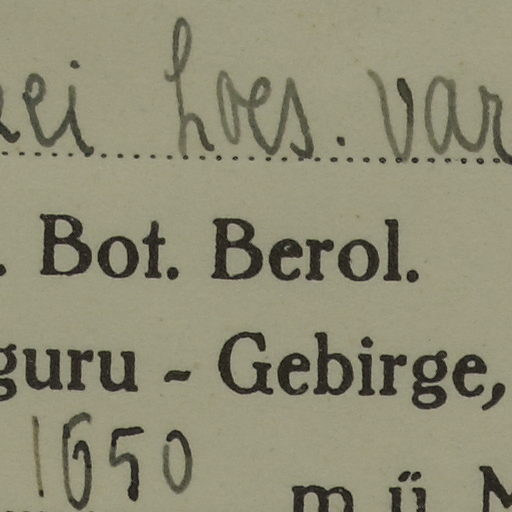 ei Loes. var
. Bot. Berol.
guru - Gebirge,
1650 m ü. M